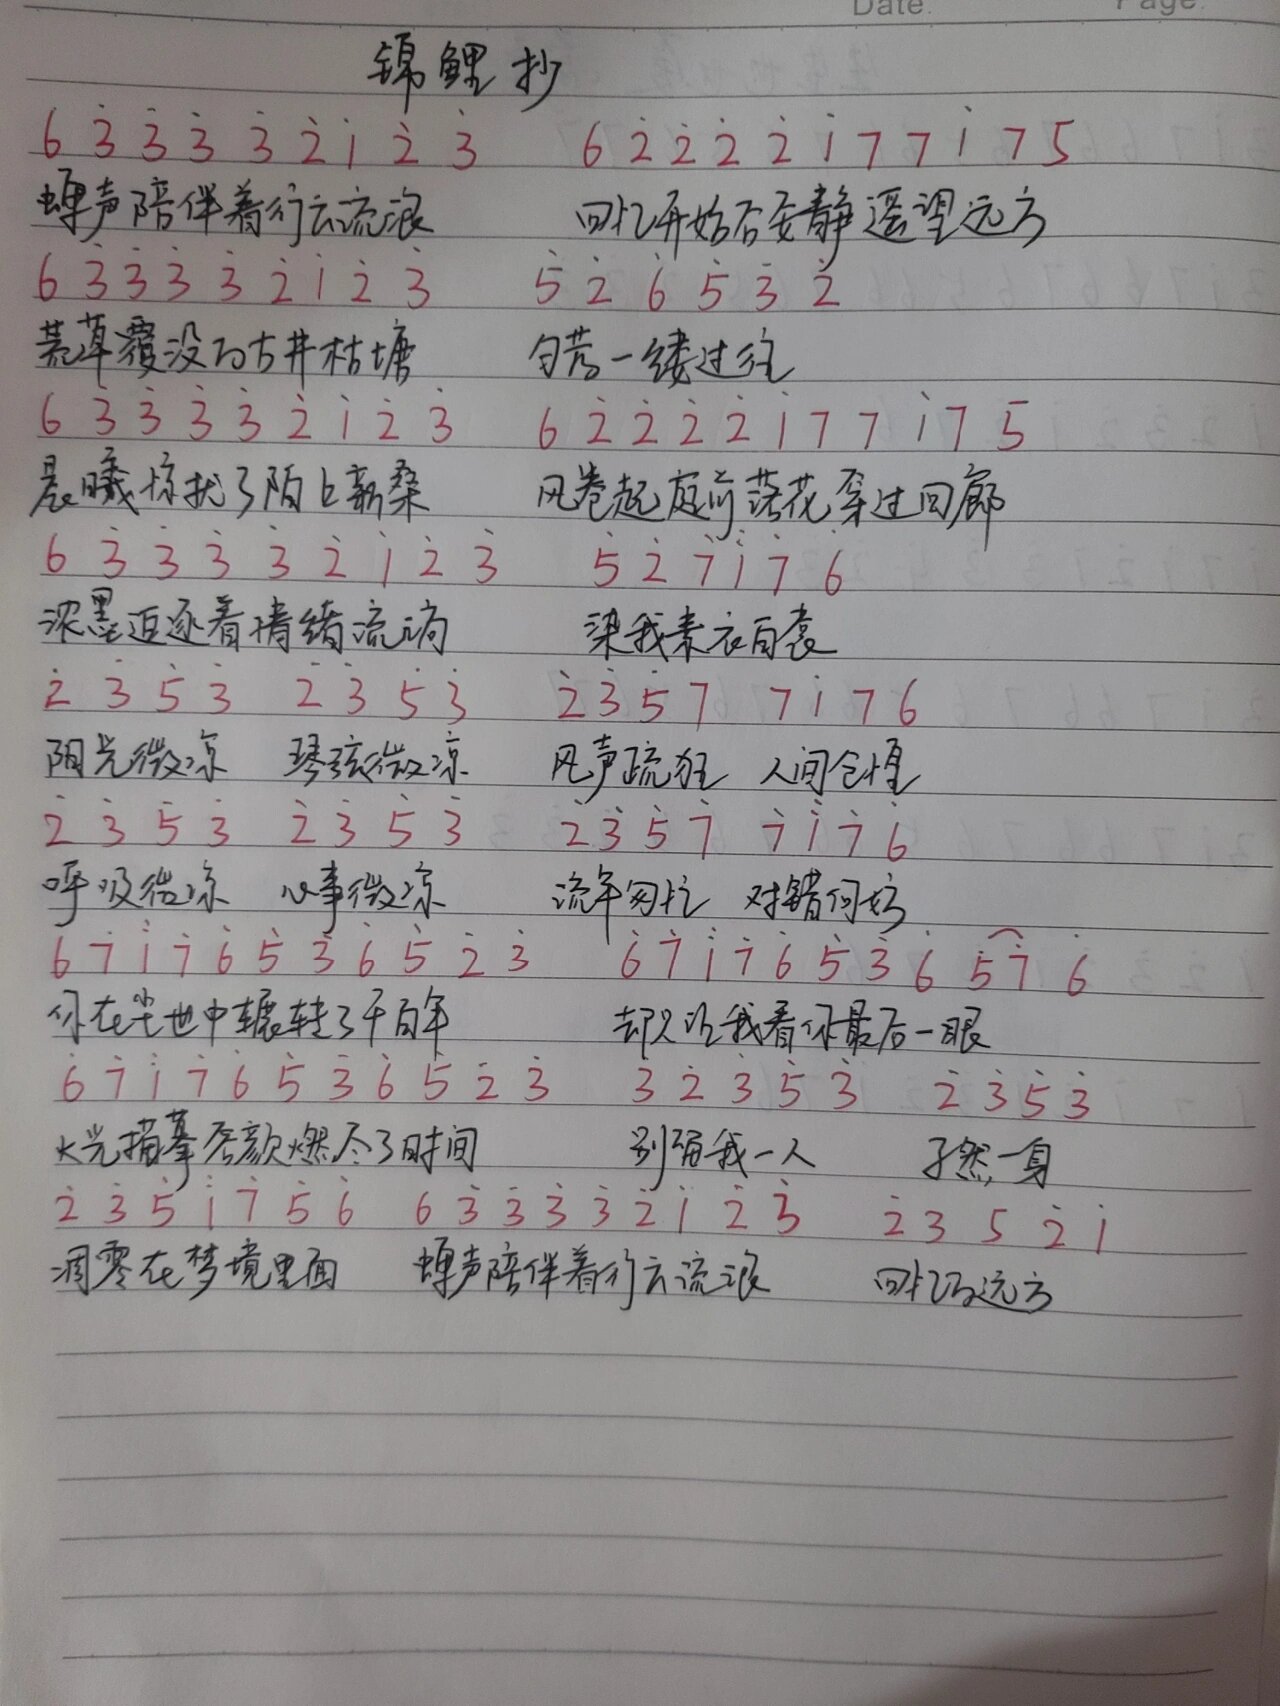 Date. Page.
锦鲤抄
6 3̇ 3̇ 3̇ 3̇ 2̇ 1̇ 2̇ 3̇ 6 2̇ 2̇ 2̇ 2̇ 1̇ 7 7 1̇ 7 5
蝉声陪伴着行云流浪 回忆开始后安静遥望远方
6 3̇ 3̇ 3̇ 3̇ 2̇ 1̇ 2̇ 3̇ 5̇ 2̇ 6̇ 5̇ 3̇ 2̇
荒草覆没的古井枯塘 匀芳一缕过往
6 3̇ 3̇ 3̇ 3̇ 2̇ 1̇ 2̇ 3̇ 6 2̇ 2̇ 2̇ 2̇ 1̇ 7 7 1̇ 7 5
晨曦惊扰了陌上新桑 风卷起庭前落花穿过回廊
6 3̇ 3̇ 3̇ 3̇ 2̇ 1̇ 2̇ 3̇ 5̇ 2̇ 7̇ 1̇ 7̇ 6̇
浓墨追逐着情绪流淌 染我素衣白裳
2̇ 3̇ 5̇ 3̇ 2̇ 3̇ 5̇ 3̇ 2̇ 3̇ 5̇ 7 7 1̇ 7 6
阳光微凉 琴弦微凉 风声疏狂 人间仓惶
2̇ 3̇ 5̇ 3̇ 2̇ 3̇ 5̇ 3̇ 2̇ 3̇ 5̇ 7̇ 7̇ 1̇ 7̇ 6̇
呼吸微凉 心事微凉 流年匆忙 对错何妨
6̇ 7̇ 1̇ 7̇ 6̇ 5̇ 3̇ 6̇ 5̇ 2̇ 3̇ 6̇ 7̇ 1̇ 7̇ 6̇ 5̇ 3̇ 6̇ 5̇ 7̇ 6̇
你在尘世中辗转了千百年 却只让我看你最后一眼
6̇ 7̇ 1̇ 7̇ 6̇ 5̇ 3̇ 6̇ 5̇ 2̇ 3̇ 3̇ 2̇ 3̇ 5̇ 3̇ 2̇ 3̇ 5̇ 3̇
火光描摹容颜燃尽了时间 别留我一人 孑然一身
2̇ 3̇ 5̇ 1̇ 7̇ 5̇ 6̇ 6 3̇ 3̇ 3̇ 3̇ 2̇ 1̇ 2̇ 3̇ 2̇ 3̇ 5 2̇ 1̇
凋零在梦境里面 蝉声陪伴着行云流浪 回忆的远方